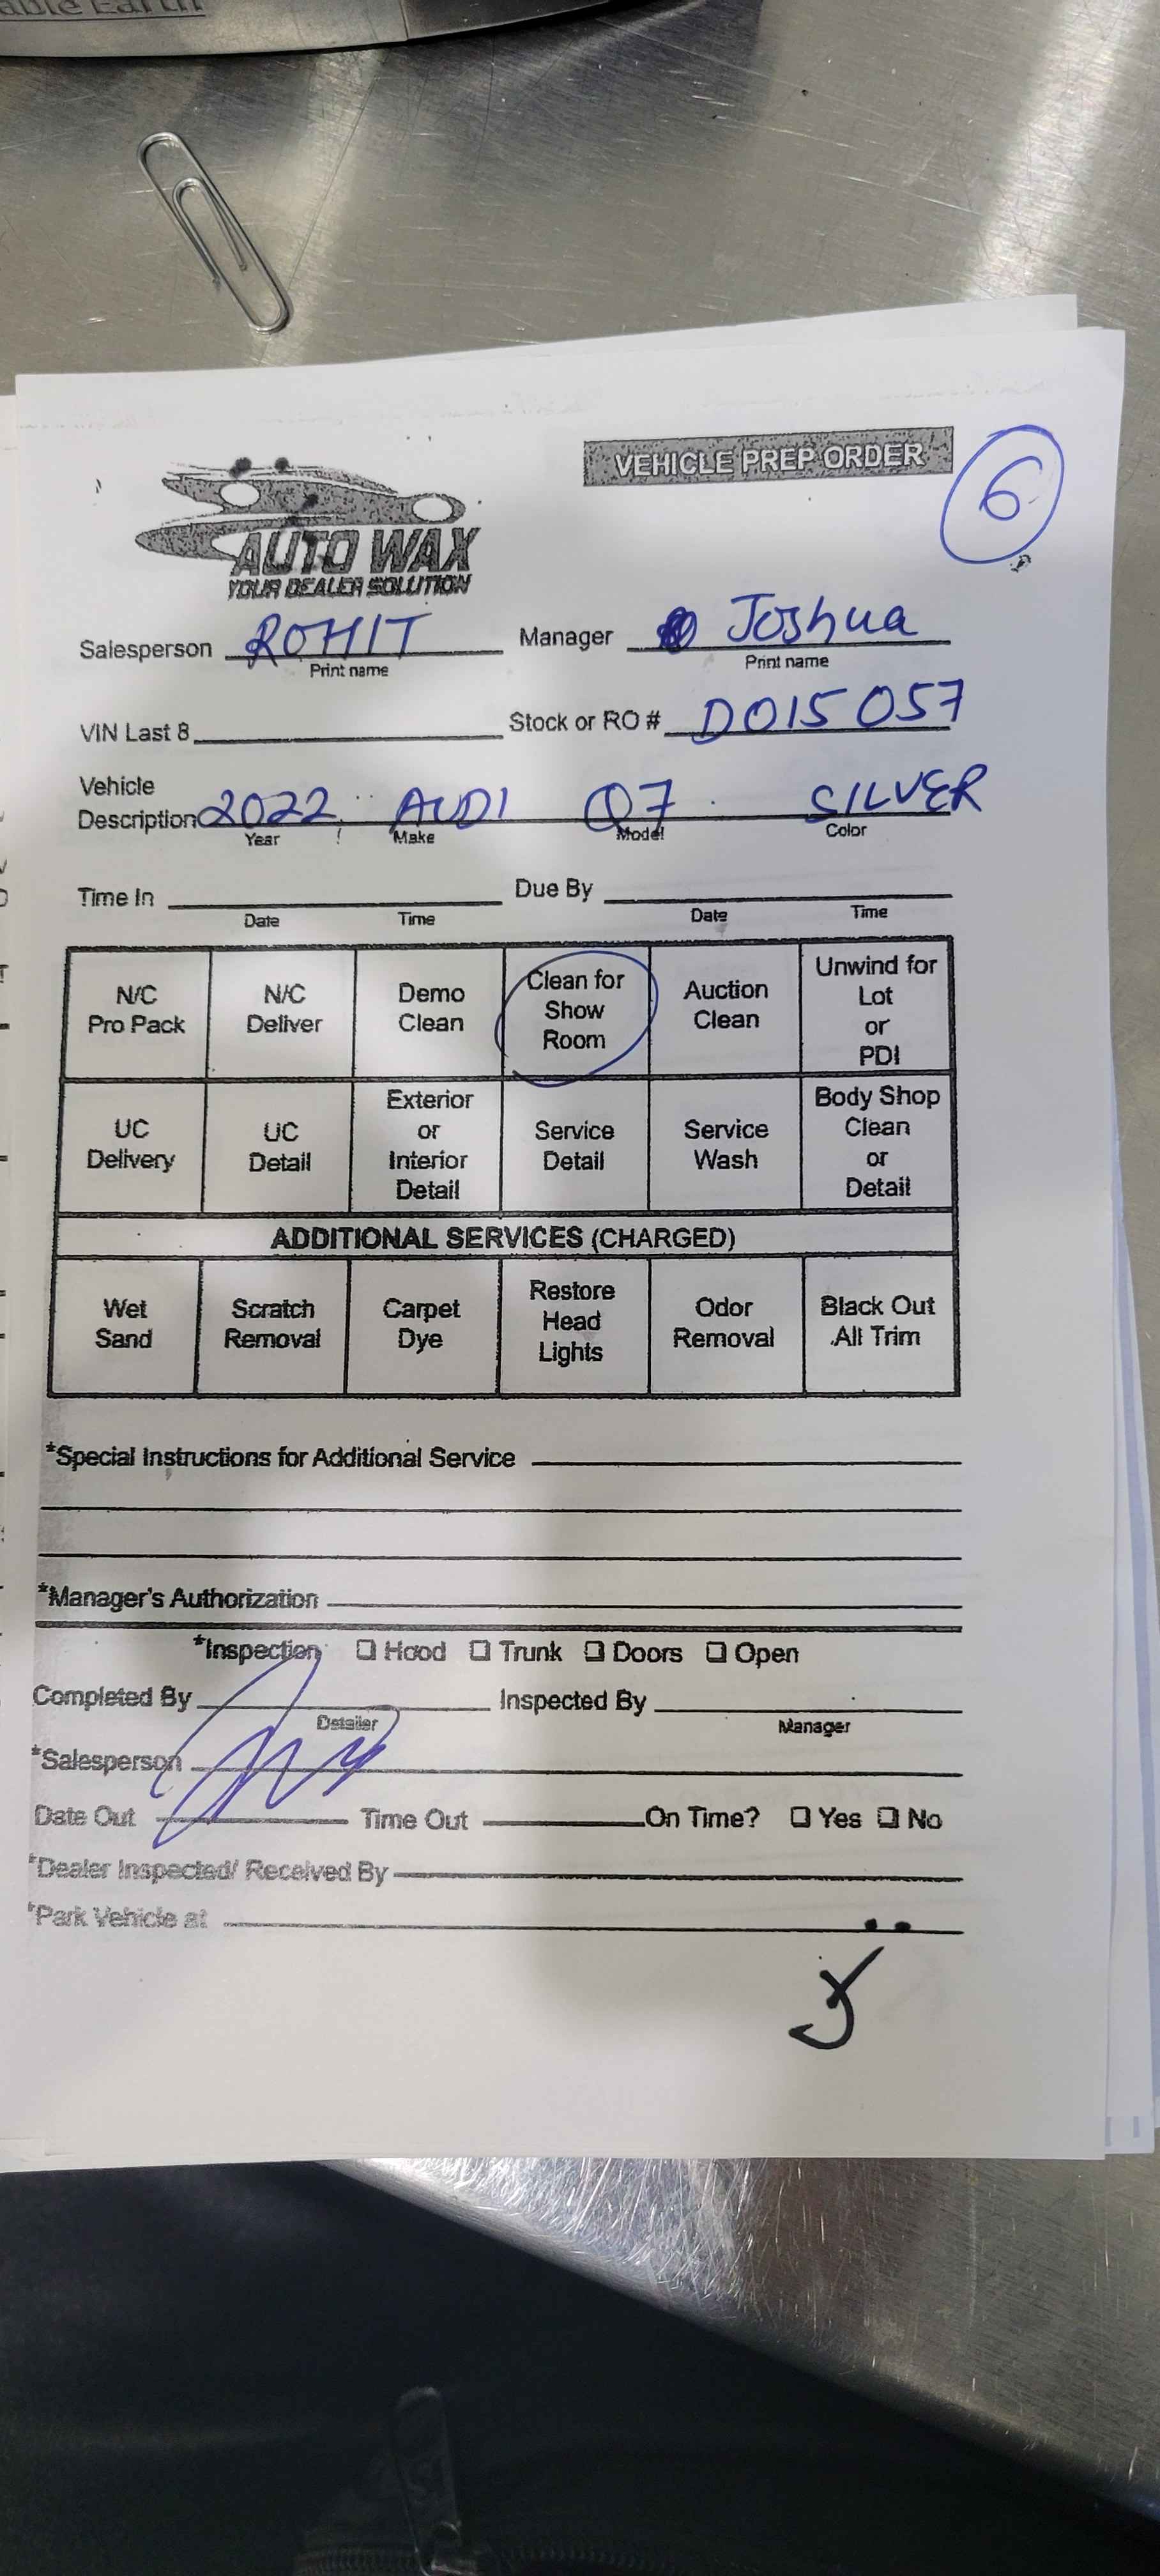 able Earth
VEHICLE PREP ORDER
6
AUTO WAX
YOUR DEALER SOLUTION
Salesperson ROHIT Manager Joshua
Print name Print name
VIN Last 8 Stock or RO # DO15057
Vehicle
Description 2022 AUDI Q7 SILVER
Year Make Model Color
Time In Due By
Date Time Date Time
N/C Pro Pack N/C Deliver Demo Clean Clean for Show Room Auction Clean Unwind for Lot or PDI
UC Delivery UC Detail Exterior or Interior Detail Service Detail Service Wash Body Shop Clean or Detail
ADDITIONAL SERVICES (CHARGED)
Wet Sand Scratch Removal Carpet Dye Restore Head Lights Odor Removal Black Out All Trim
*Special Instructions for Additional Service
*Manager's Authorization
*Inspection ❑ Hood ❑ Trunk ❑ Doors ❑ Open
Completed By Inspected By
Detailer Manager
*Salesperson
Date Out Time Out On Time? ❑ Yes ❑ No
*Dealer Inspected/ Received By
*Park Vehicle at